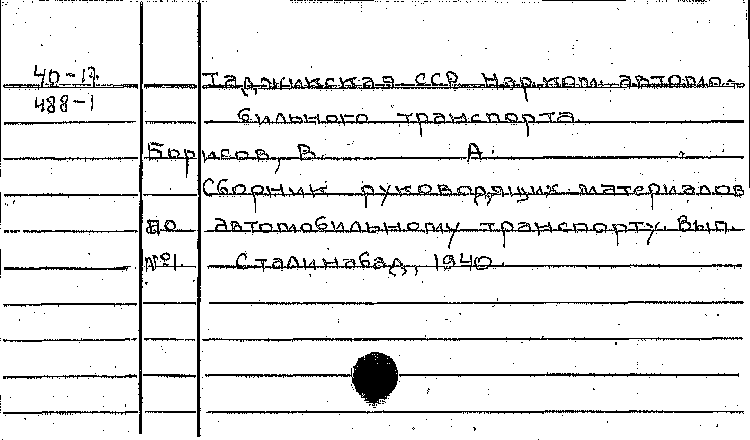 40-17 Таджикская ССР. Нар. ком. автомо-
488-1 бильного транспорта.
Борисов, В. А.
Сборник руководящих материалов
по автомобильному транспорту. Вып.
№1. Сталинабад, 1940.